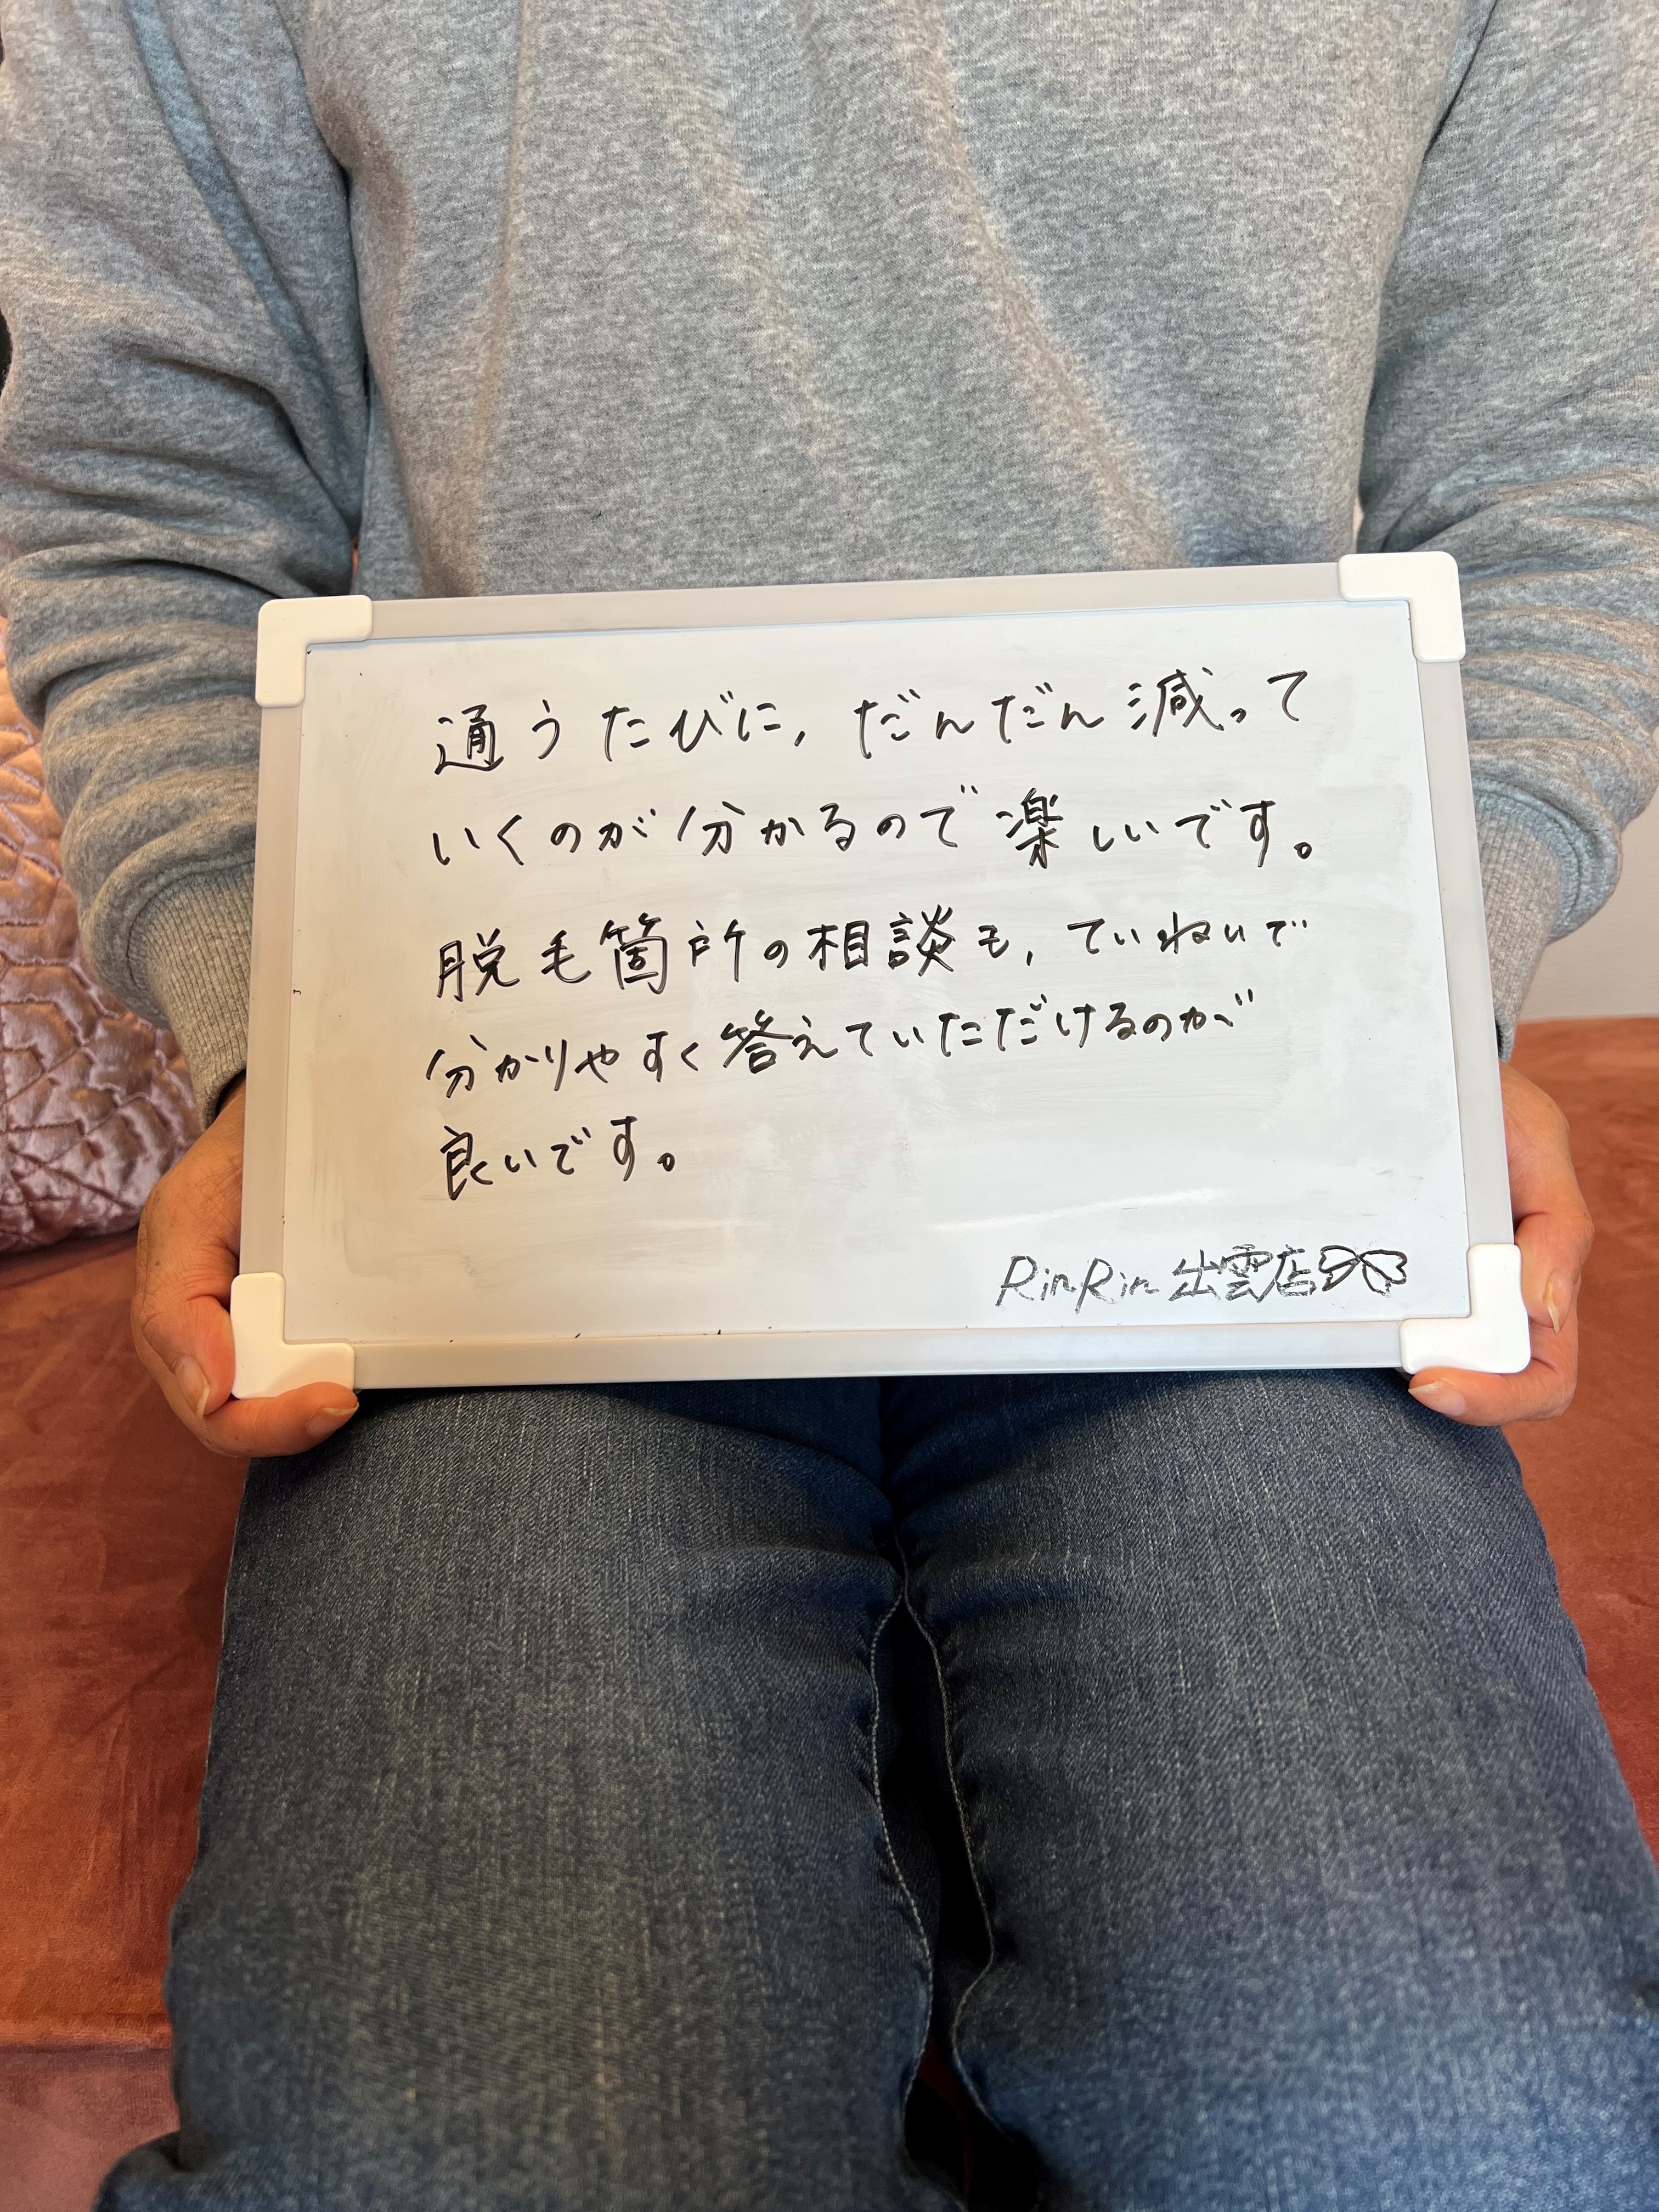 通うたびに,だんだん減って
いくのが分かるので楽しいです。
脱毛箇所の相談も,ていねいで
分かりやすく答えていただけるのが
良いです。
RinRin出雲店